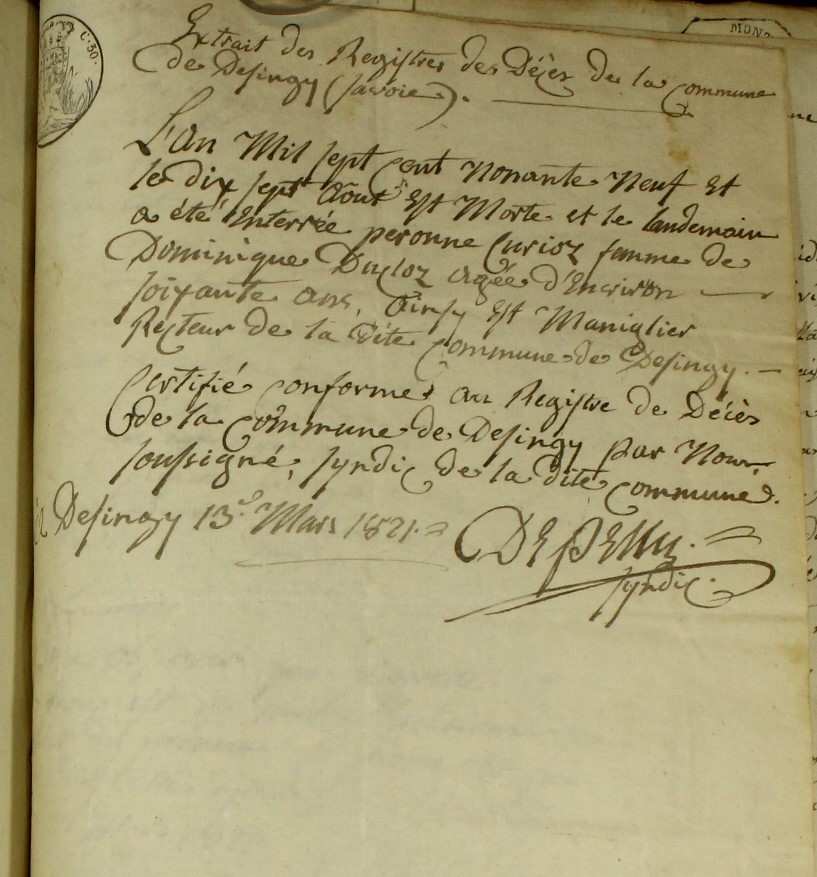 C. 50.
MON
Extrait des Registres des Décès de la Commune
de Desingy (Savoie).
L'an Mil sept Cent Nonante Neuf Et
le dix sept Aout Est Morte et le landemain
a été Enterrée peronne Curioz famme de
Dominique Ducloz agée d'Environ
soixante ans, Ainsy Est Maniglier
Recteur de la dite Commune de Desingy.
Certifié Conforme au Registre de Décès
de la Commune de Desingy par Nous
soussigné, syndic de la dite Commune.
Desingy 13 Mars 1821.
syndic.